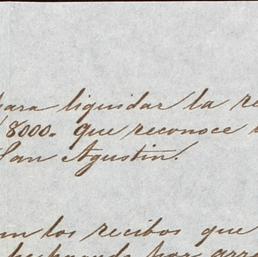 para liquidar la re
8000. que reconoce
San Agustin.
los recibos que
por